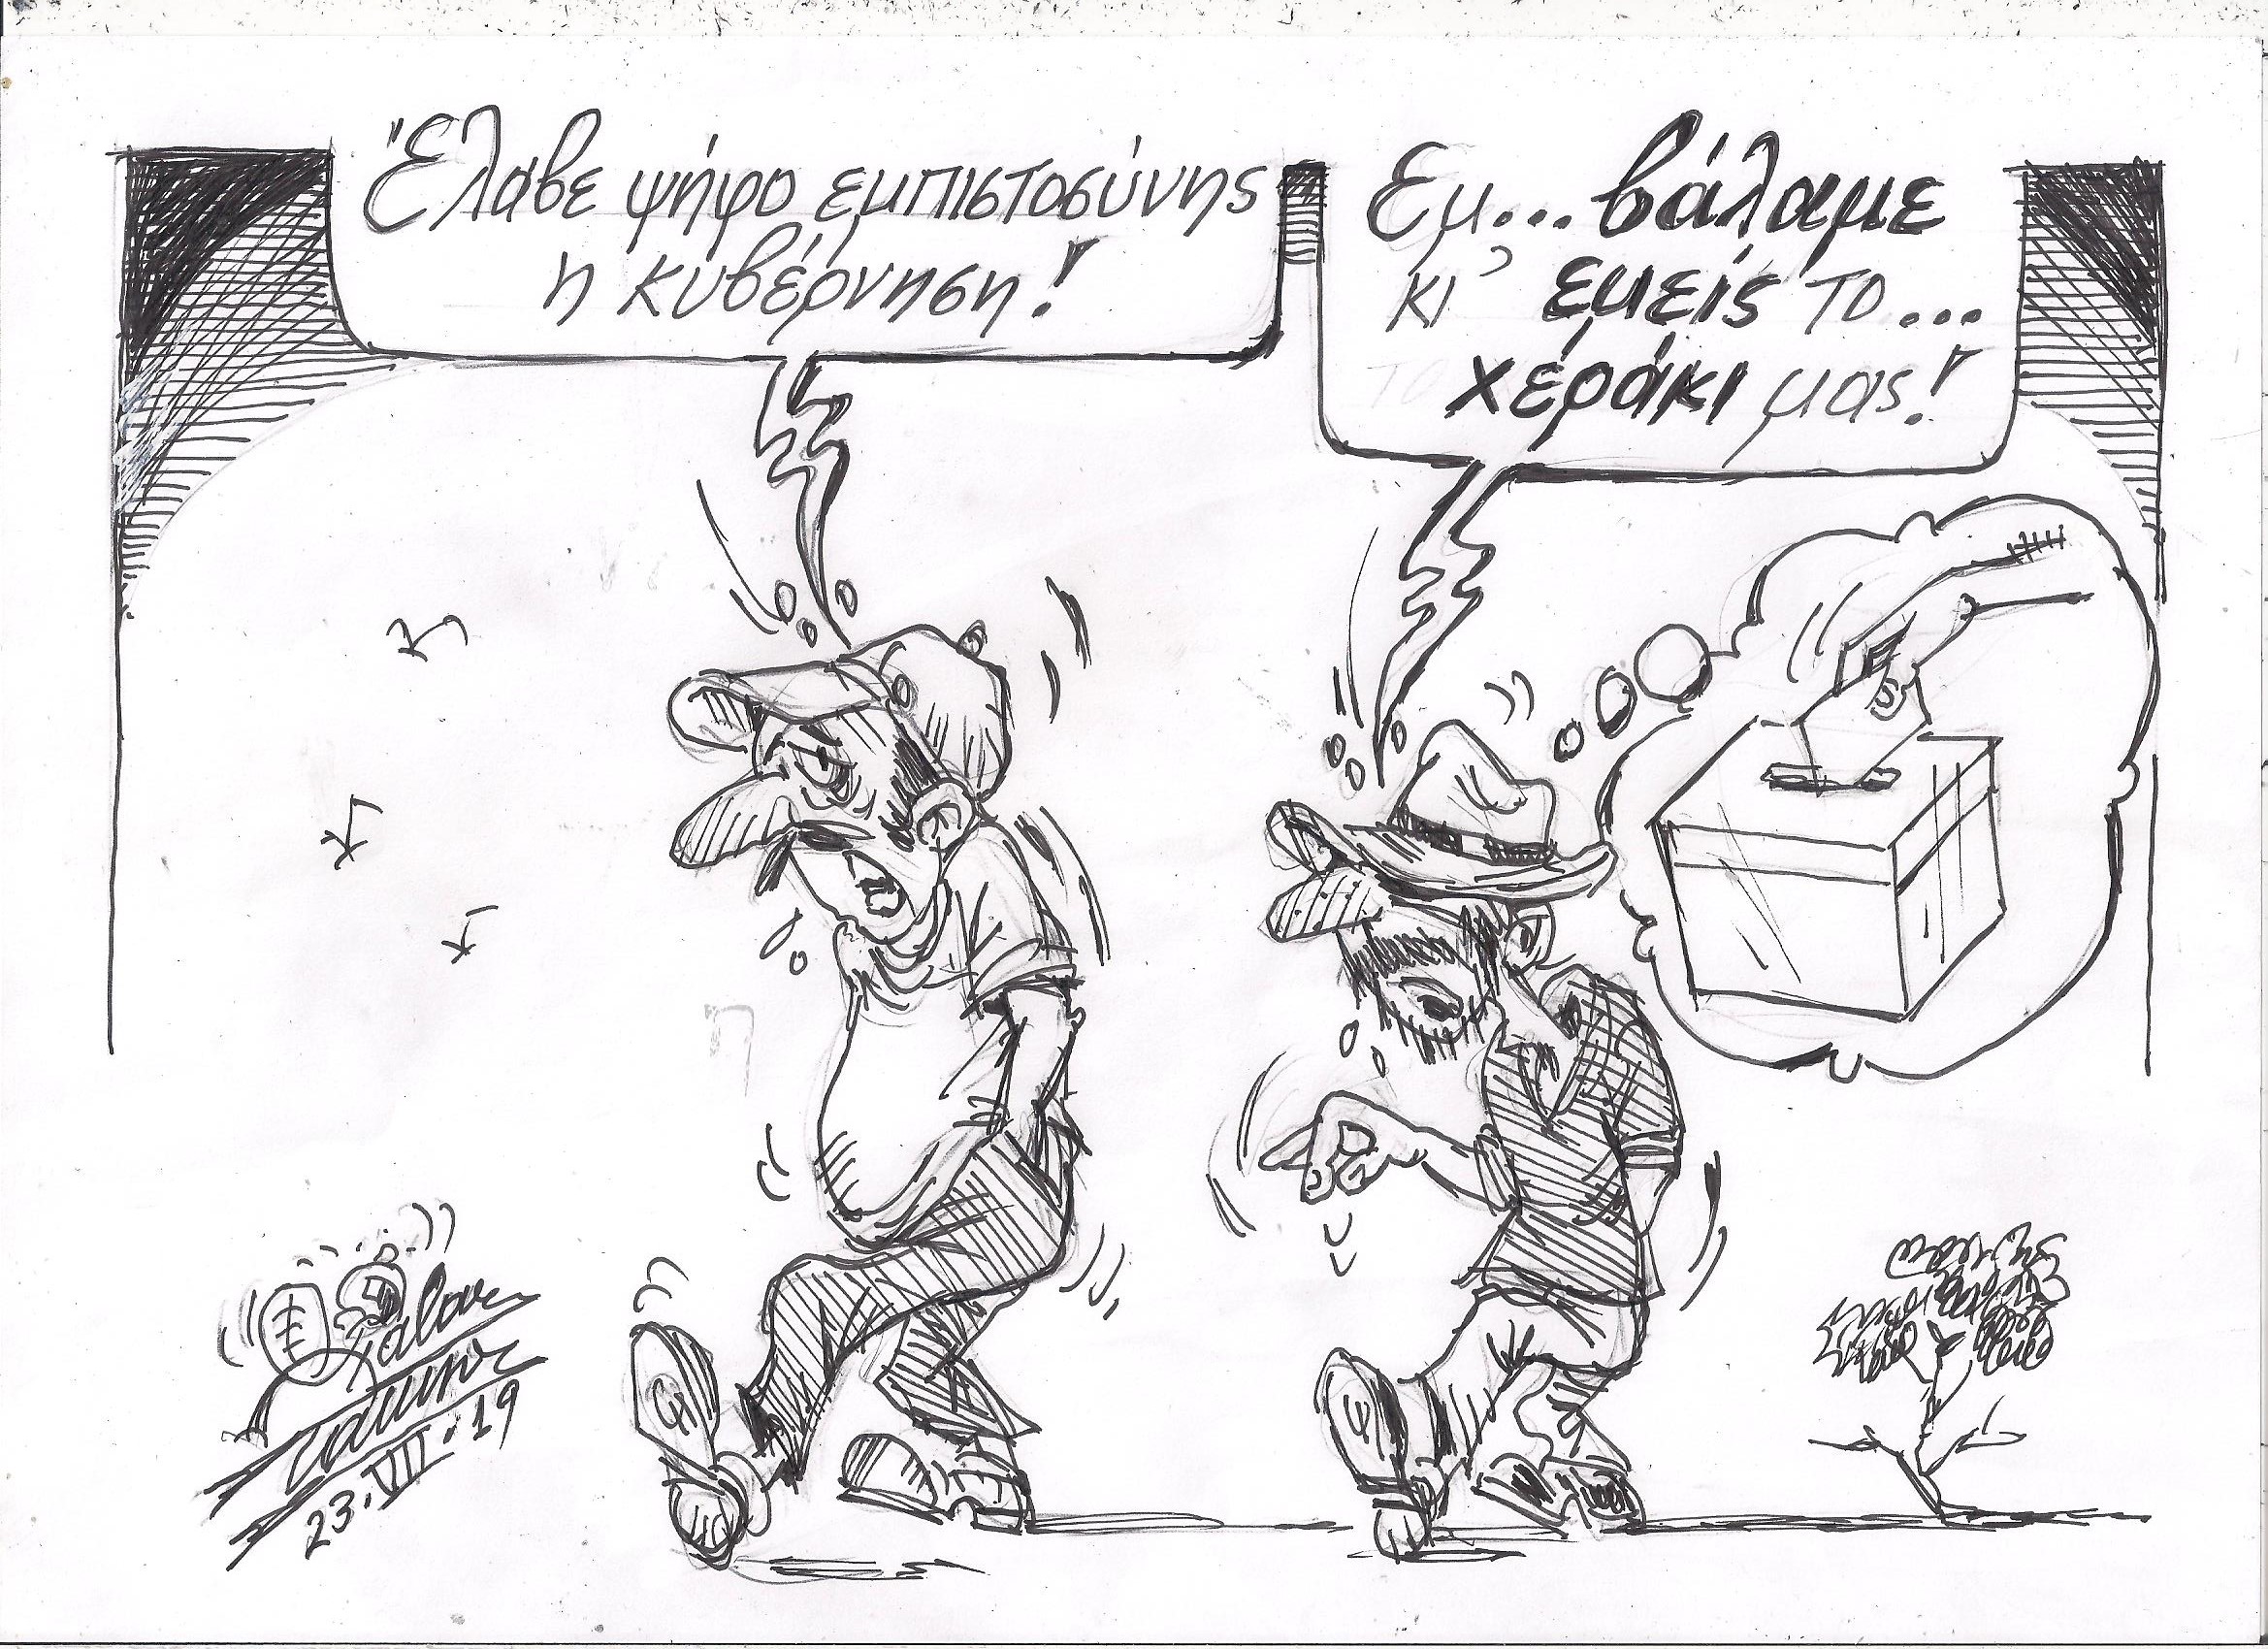 Έλαβε ψήφο εμπιστοσύνης
η κυβέρνηση!
Εμ... βάλαμε
κι' εμείς το...
χεράκι μας!
23.VII.19